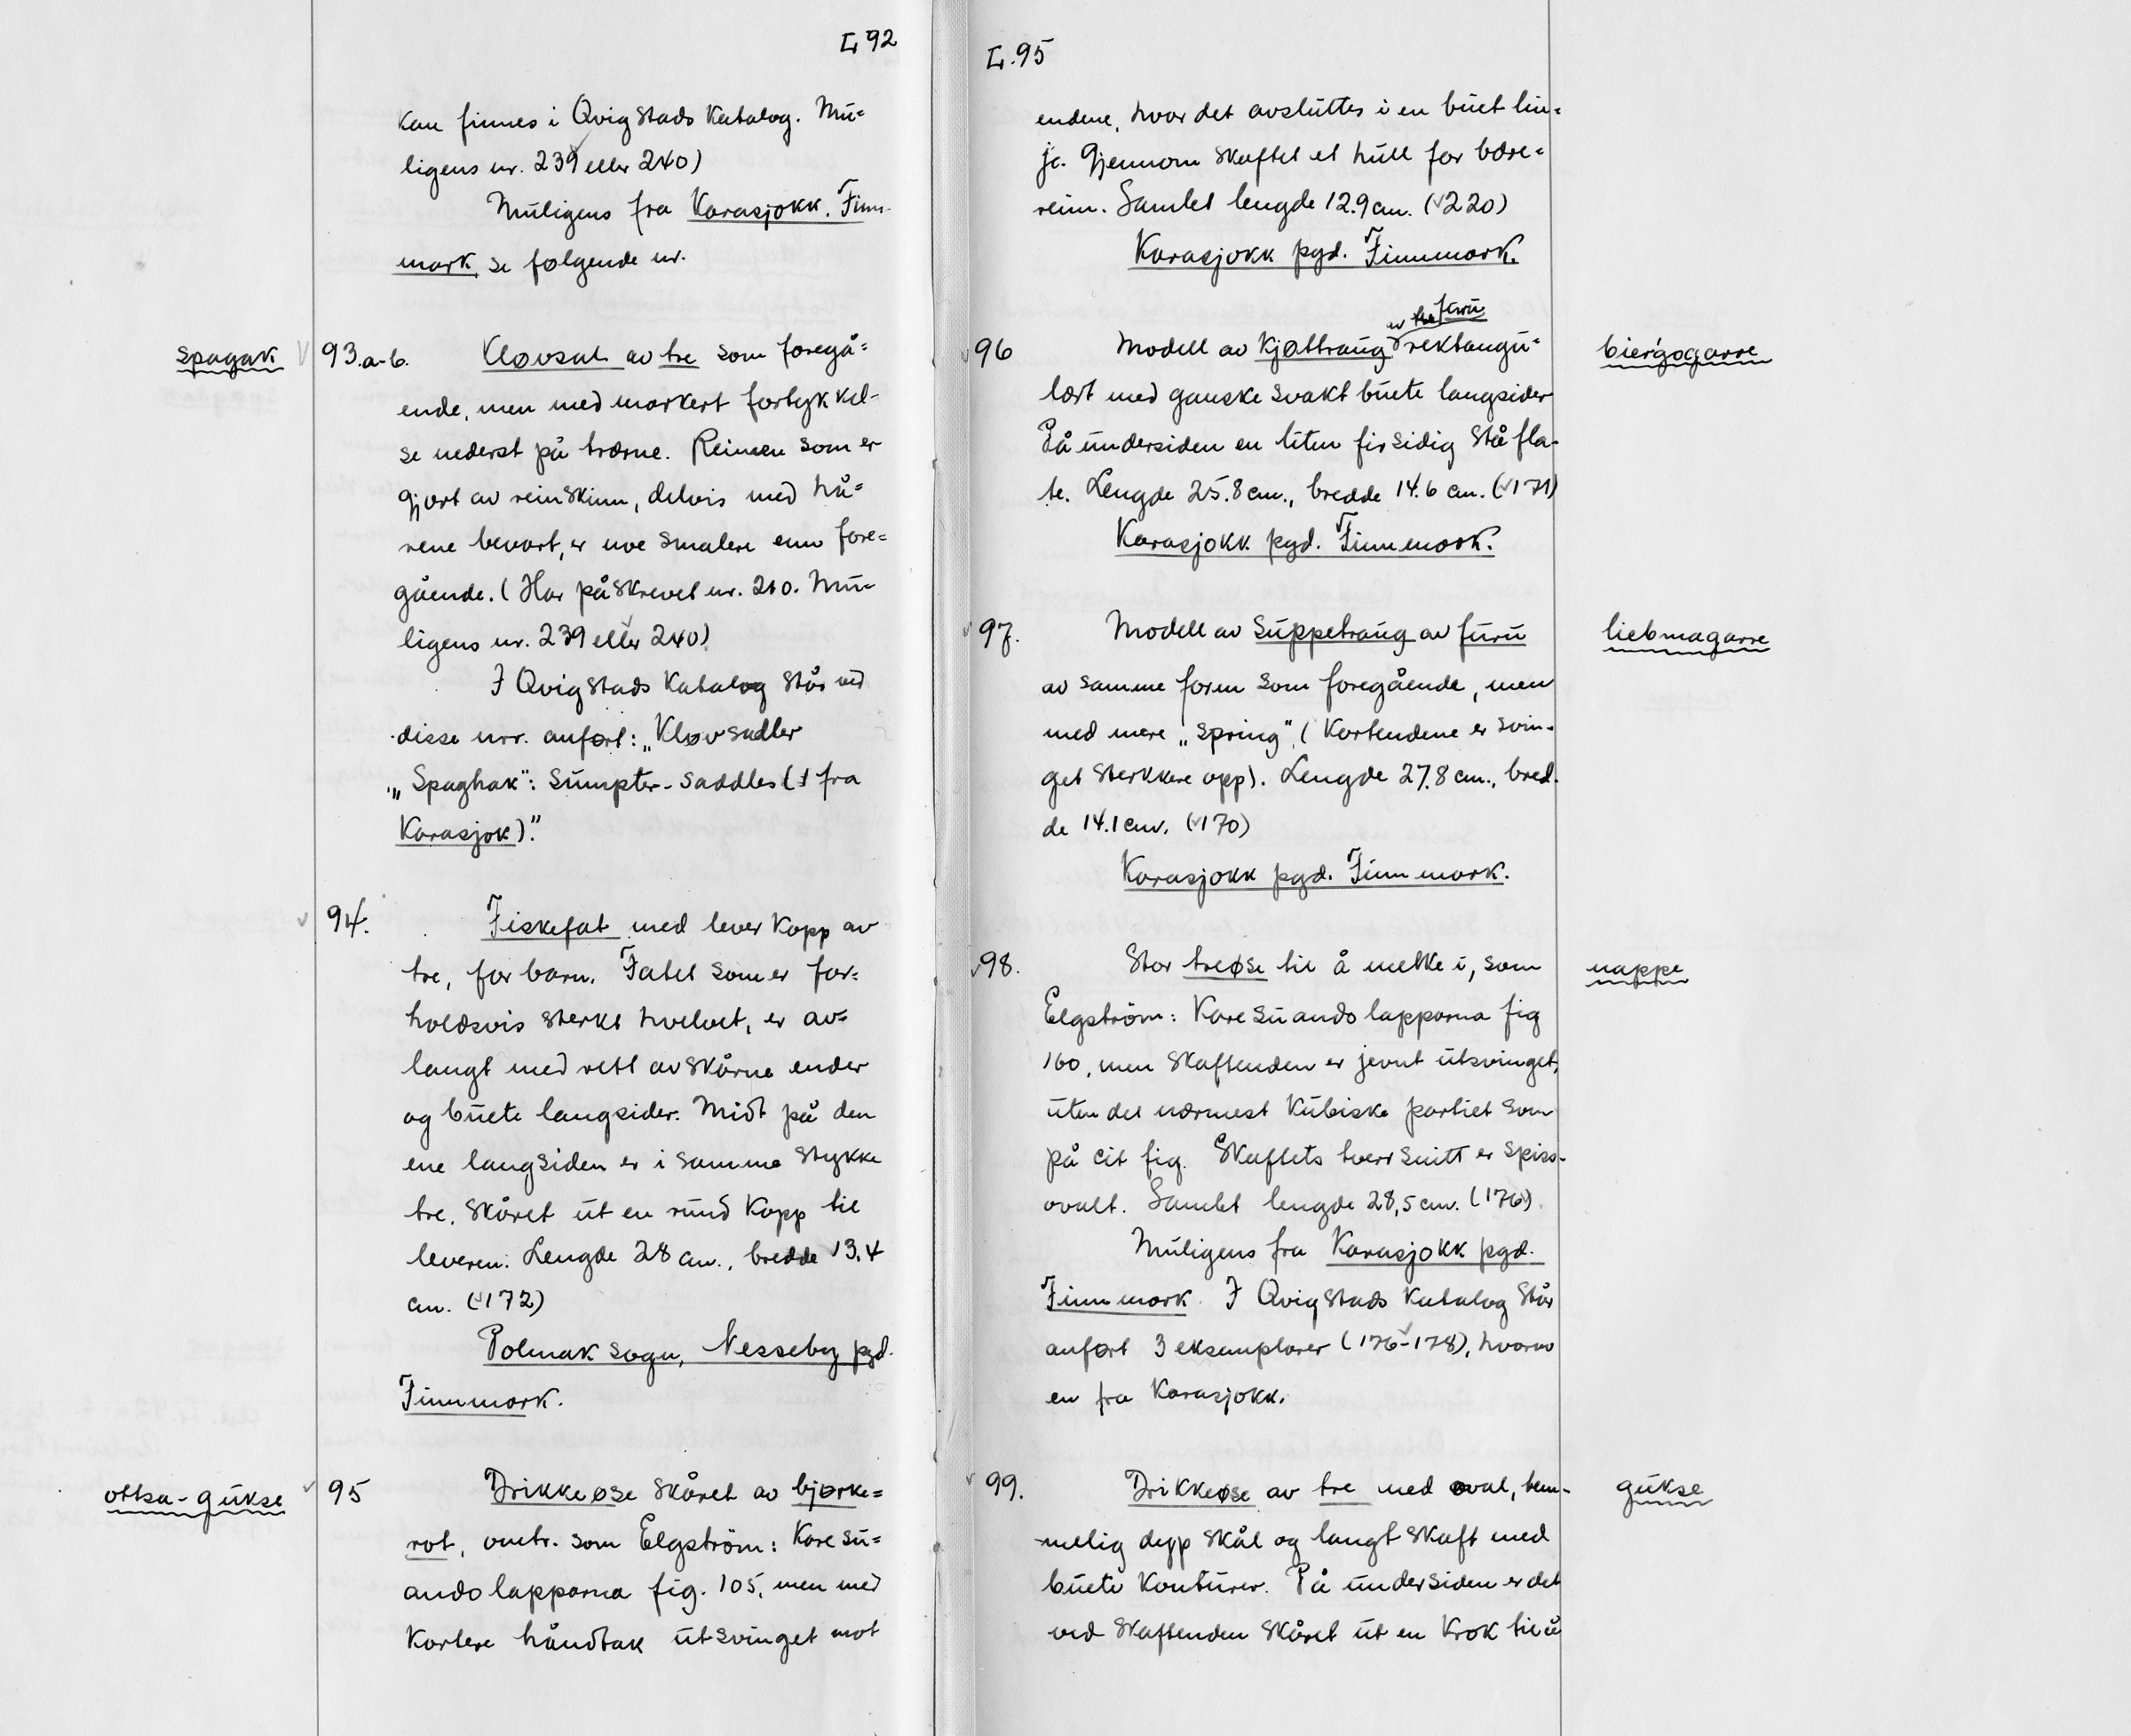 L 92
kan finnes i Qvigstads Katalog. Mu=
ligens nr. 239 eller 240)
Muligens fra Karasjokk, Finn-
mark, se følgende nr.
spagak
93.a-b. Kløvsal av tre som foregå=
ende, men med markert fortykkel-
se nederst på trærne. Reimen som er
gjort av reinskinn, delvis med hå=
rene bevart, er noe smalere enn fore=
gående. (Har påskrevet nr. 210. Mu-
ligens nr. 239 eller 240)
I Qvigstads Katalog står ved
disse nrr. anført: „Kløvsadler
„Spaghak": Sumpter-saddles (1 fra
Karasjok)."
94. Fiskefat med leverkopp av
tre, for barn. Fatet som er for=
holdsvis sterkt hvelvet, er av=
langt med rett avskårne ender
og buete langsider. Midt på den
ene langsiden er i samme stykke
tre, skåret ut en rund kopp til
leveren. Lengde 28 cm., bredde 13,4
cm. (172)
Polmak sogn, Nesseby pgd.
Finnmark.
ottsa-gukse
95 Drikkeøse skåret av bjørke=
rot, omtr. som Elgström: Karesu=
andolapparna fig. 105, men med
kortere håndtak utsvinget mot
L.95
endene, hvor det avsluttes i en buet lin=
je. Gjennom skaftet et hull for bære=
reim. Samlet lengde 12.9 cm. (220)
Karasjokk pgd. Finnmark.
av furu
96 Modell av kjøttraug rektangu=
lært med ganske svakt buete langsider
På undersiden en liten firsidig ståfla-
te. Lengde 25.8 cm., bredde 14.6 cm. (171)
Karasjokk pgd. Finnmark.
bier'gogarre
97. Modell av suppetraug av furu
av samme form som foregående, men
med mere „spring". (Kortendene er svin-
get sterkkere opp). Lengde 27.8 cm., bred-
de 14.1 cm. (170)
Karasjokk pgd. Finnmark.
liebmagarre
98. Stor treøse til å melke i, som
Elgström: Karesuandolapparna fig
160, men skaftenden er jevnt utsvinget,
uten det nærmest kubiske partiet som
på cit fig. Skaftets tverrsnitt er spiss-
ovalt. Samlet lengde 28,5 cm. (176).
Muligens fra Karasjokk pgd.
Finnmark. I Qvigstads Katalog står
anført 3 eksemplarer (176-178), hvorav
en fra Karasjokk.
nappe
99. Drikkeøse av tre med oval, tem-
melig dypp skål og langt skaft med
buete konturer. På undersiden er det
ved skaftenden skåret ut en krok til å
gukse